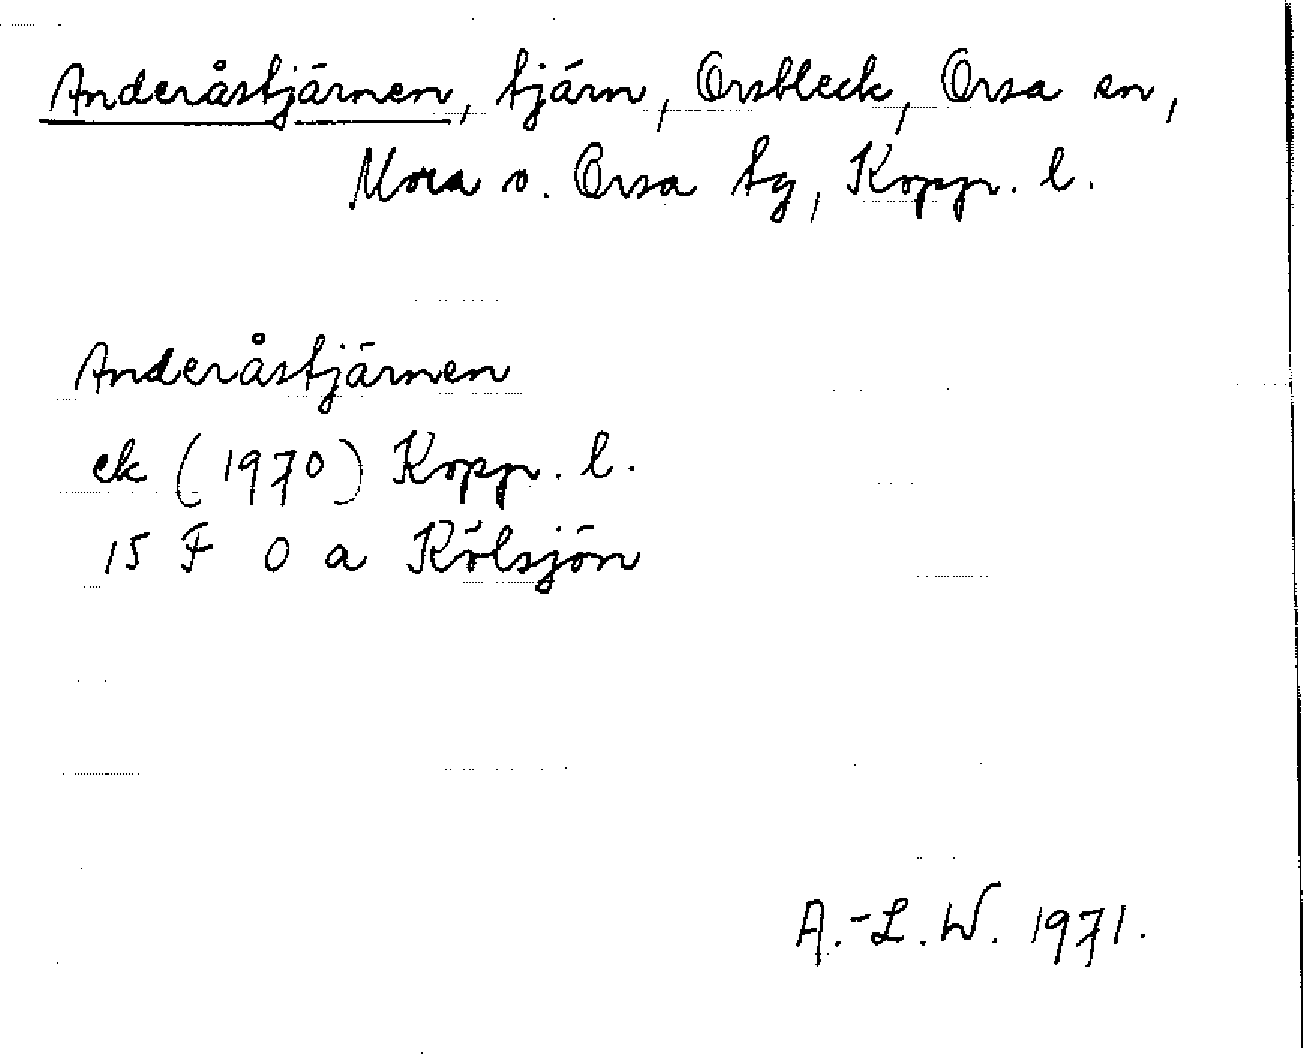 Anderåstjärnen, tjärn, Orsbleck, Orsa sn,
Mora o. Orsa tg, Koppr. l.
Anderåstjärnen
ek (1970) Koppr. l.
15 F 0 a Kölsjön
A.-L. W. 1971.